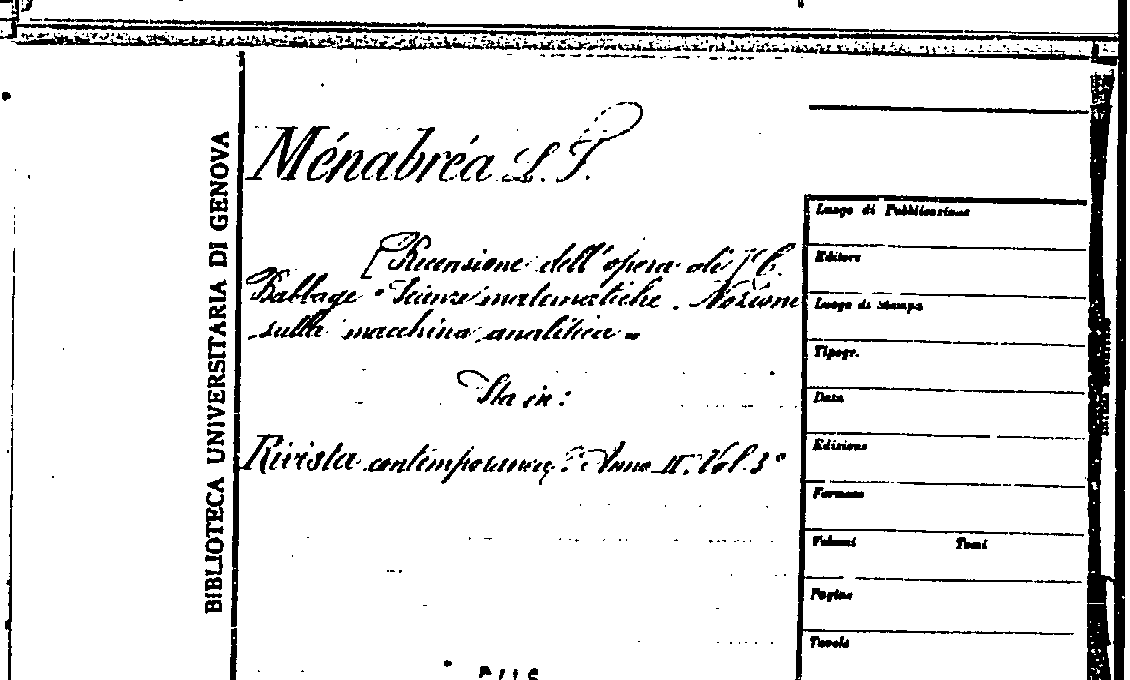 BIBLIOTECA UNIVERSITARIA DI GENOVA
Ménabréa L. F.
[Recensione dell'opera di] C.
Babbage "Scienze matematiche. Nozione
sulla macchina analitica"
Sta in:
Rivista contemporanea: Anno II. Vol. 3º
Luogo di Pubblicazione
Editore
Luogo di Stampa
Tipogr.
Data
Edizione
Formato
Volumi Tomi
Pagine
Tavole